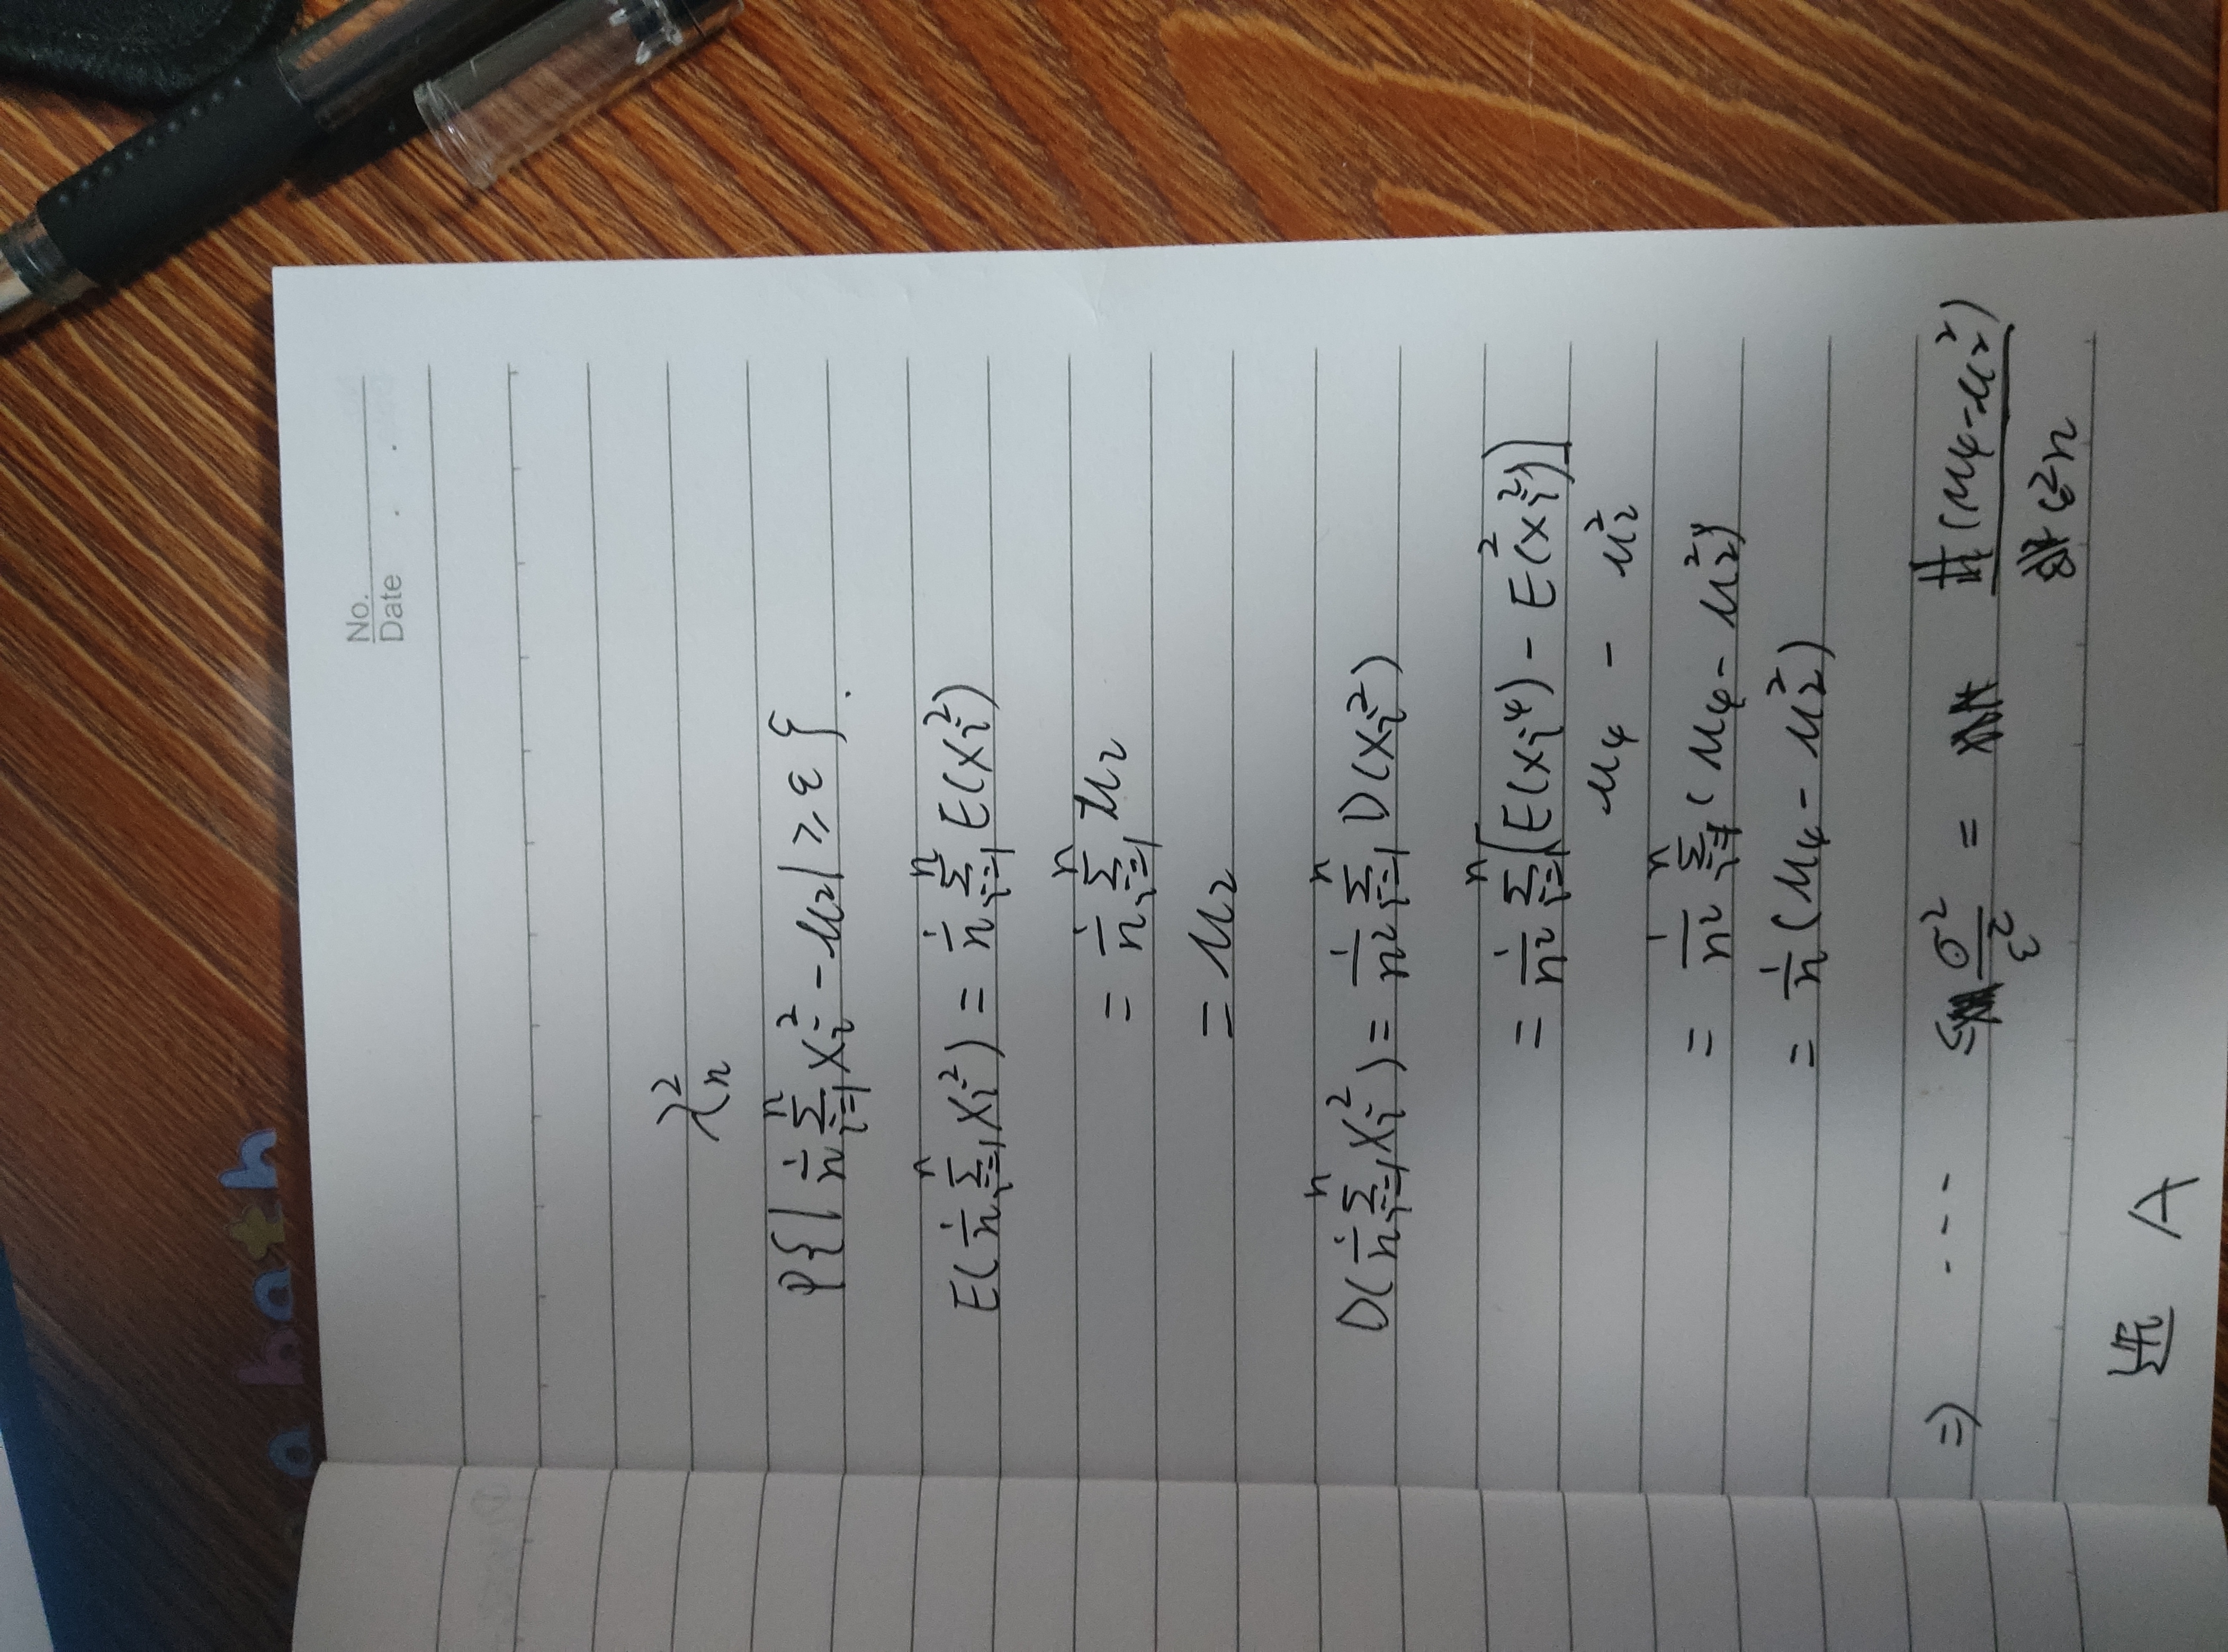 No.
Date . .
χ²ₙ
P{|1/n ∑ᵢ₌₁ⁿ Xᵢ² - μ₂| ≥ ε}.
E(1/n ∑ᵢ₌₁ⁿ Xᵢ²) = 1/n ∑ᵢ₌₁ⁿ E(Xᵢ²)
= 1/n ∑ᵢ₌₁ⁿ μ₂
= μ₂
D(1/n ∑ᵢ₌₁ⁿ Xᵢ²) = 1/n² ∑ᵢ₌₁ⁿ D(Xᵢ²)
= 1/n² ∑ᵢ₌₁ⁿ [E(Xᵢ⁴) - E²(Xᵢ²)]
μ₄ - μ₂²
= 1/n² ∑ᵢ₌₁ⁿ (μ₄ - μ₂²)
= 1/n (μ₄ - μ₂²)
⇒ ···· ≤ σ²/ε² = (μ₄ - μ₂²)/ε²n
选 A
a bath